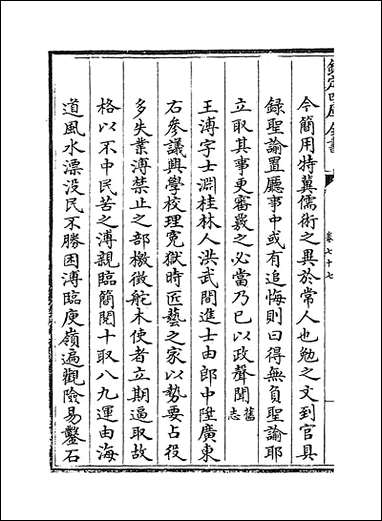 欽定四庫全書
卷七十七
今簡用特冀儒術之異於常人也勉之文到官具
錄聖諭置廳事中或有追悔則曰得無負聖諭耶
立取其事更審覈之必當乃已以政聲聞舊志
王溥字士淵桂林人洪武間進士由郎中陞廣東
右參議興學校理寃獄時匠藝之家以勢要占役
多失業溥禁止之部檄徵舵木使者立期逼取故
格以不中民苦之溥親臨簡閱十取八九運由海
道風水漂没民不勝困溥臨庾嶺遍觀險易鑿石